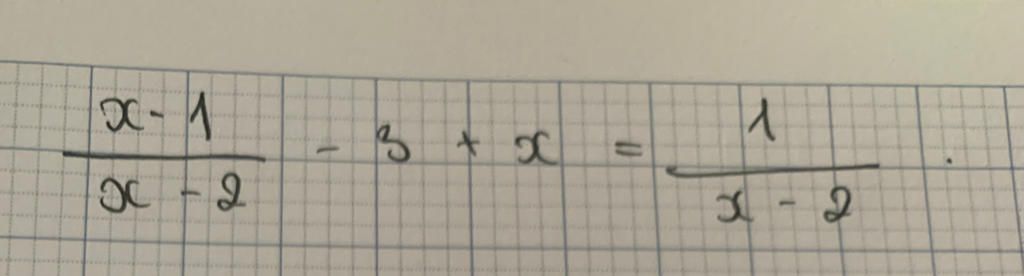 x-1/x-2 - 3 + x = 1/x-2 .